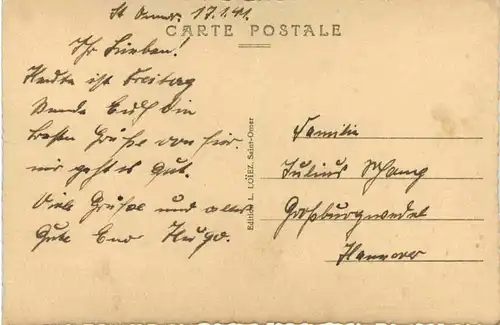 St Omer. 17.1.41.
CARTE POSTALE
Ihr Lieben!
Heute ist Freitag
Sende Euch die
besten Grüße von hier.
mir geht es Gut.
Viele Grüße und alles
Gute Euer Hugo.
Edition L. LOÏEZ, Saint-Omer
Familie
Julius
Großburgwedel
Hannover